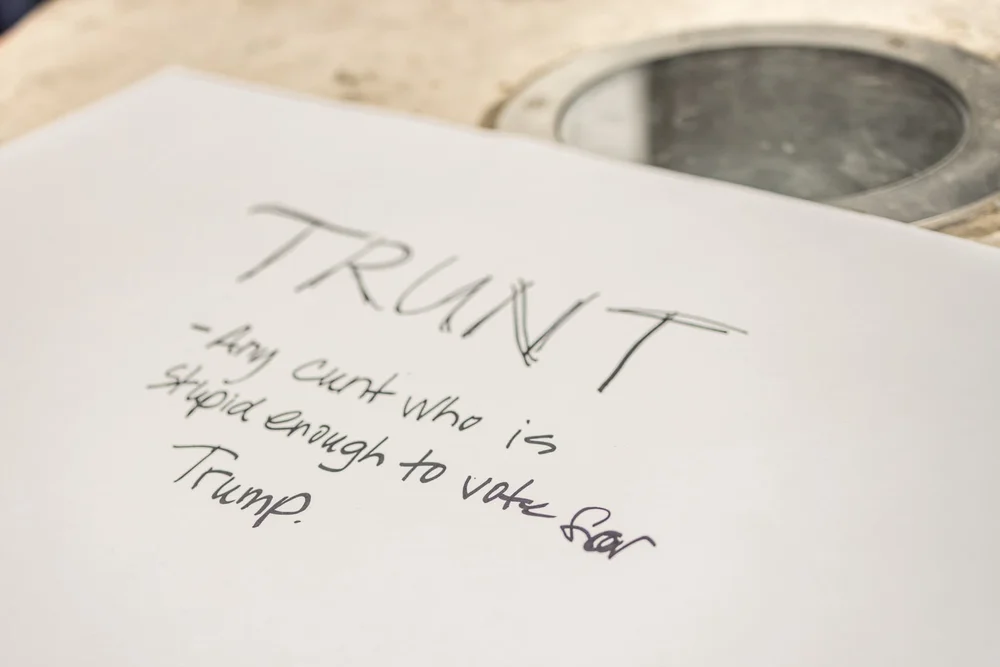 TRUNT
-Any cunt who is
stupid enough to vote for
Trump.